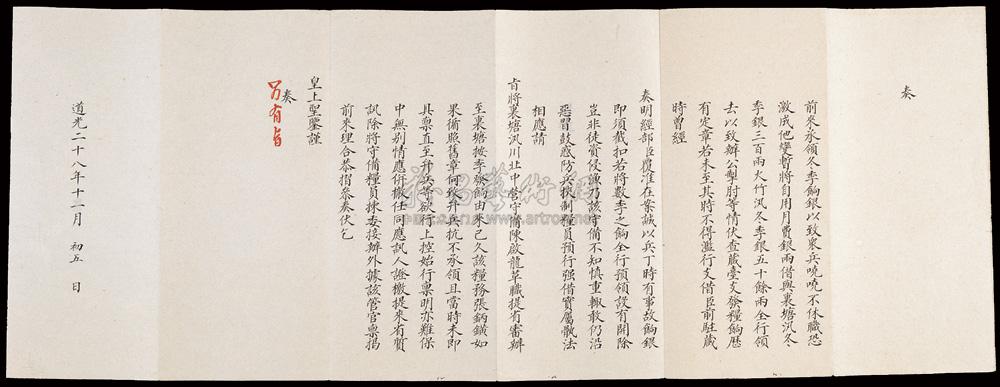 奏
前來承領冬季餉銀以致衆兵嘵嘵不休職恐
激成他變暫將自用月費銀兩借與裏塘汛冬
季銀三百兩火竹汛冬季銀五十餘兩全行領
去以致辦公掣肘等情伏查藏臺支發糧餉歷
有定章若未至其時不得濫行支借臣前駐藏
時曾經
奏明經部臣覆准在案誠以兵丁時有事故餉銀
即須截扣若將數季之餉全行預領設有開除
豈非徒資侵漁乃該守備不知慎重輒敢仍沿
惡習鼓惑防兵挾制糧員預行強借實屬骫法
相應請
旨將裏塘汛川北中營守備陳啟龍革職提省審辦
至裏塘按季發餉由來已久該糧務張鈵鐄如
果循照舊章何致弁兵抗不承領且當時未即
具稟直至弁兵等欲行上控始行稟明亦難保
中無別情應併撤任同應訊人證撤提來省質
訊除將守備糧員揀委接辦外據該管官稟揭
前來理合恭摺參奏伏乞
皇上聖鑒謹
奏
另有旨
道光二十八年十二月 初五 日